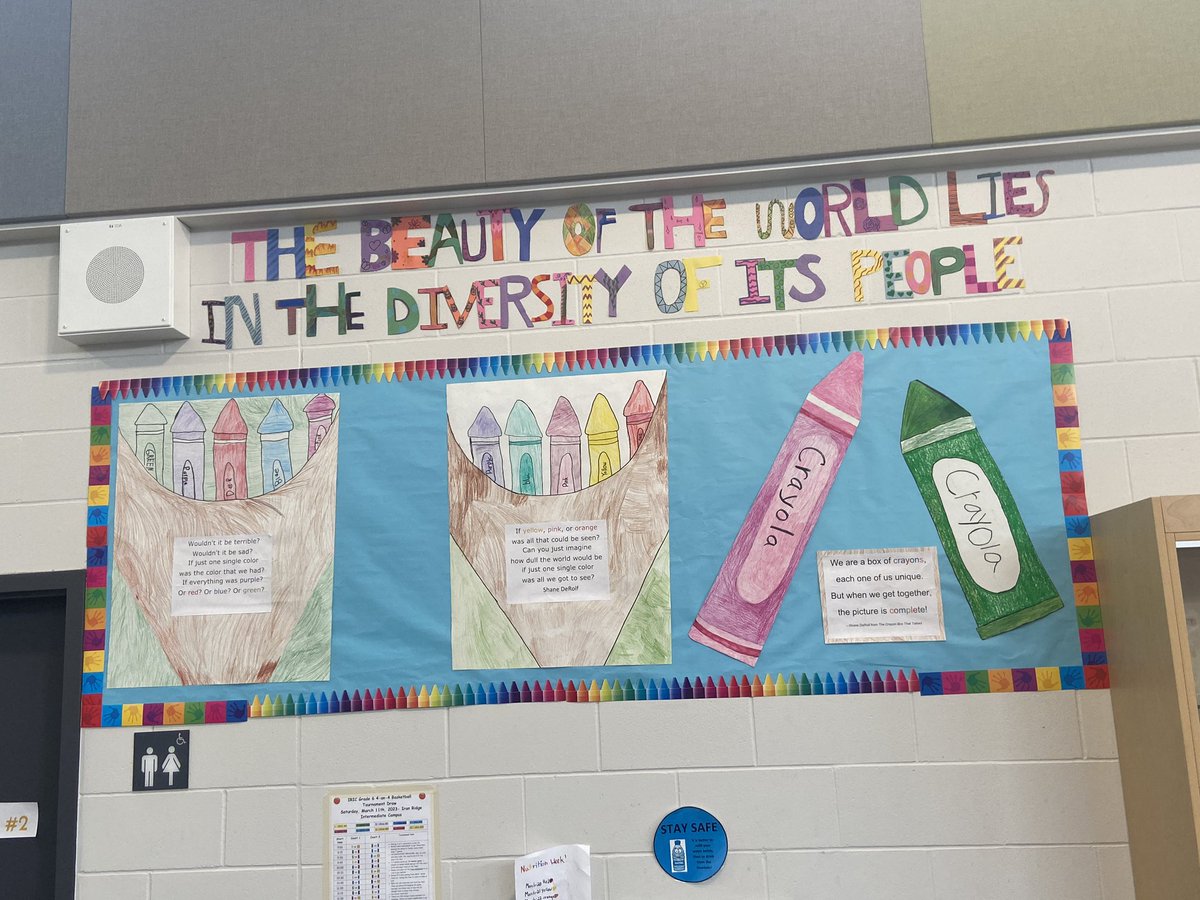 THE BEAUTY OF THE WORLD LIES
IN THE DIVERSITY OF ITS PEOPLE
GREEN
Purple
RED
Blue
Pink
Wouldn't it be terrible?
Wouldn't it be sad?
If just one single color
was the color that we had?
If everything was purple?
Or red? Or blue? Or green?
Purple
Pink
Yellow
If yellow, pink, or orange
was all that could be seen?
Can you just imagine
how dull the world would be
if just one single color
was all we got to see?
Shane DeRolf
Crayola
Crayola
We are a box of crayons,
each one of us unique.
But when we get together,
the picture is complete!
~Shane DeRolf from The Crayon Box That Talked
#2
IRIC Grade 6 4-on-4 Basketball
Tournament Draw
Saturday, March 11th, 2023- Iron Ridge
Intermediate Campus
Nutrition Week!
STAY SAFE